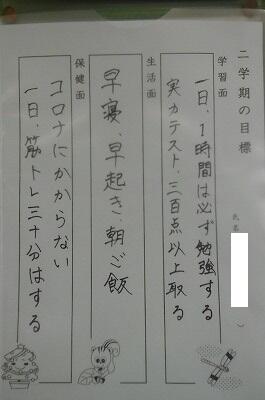 二学期の目標
氏名(　　)
学習面
一日、1時間は必ず勉強する
実力テスト、三百点以上取る
生活面
早寝、早起き、朝ご飯
保健面
コロナにかからない
一日、筋トレ三十分はする